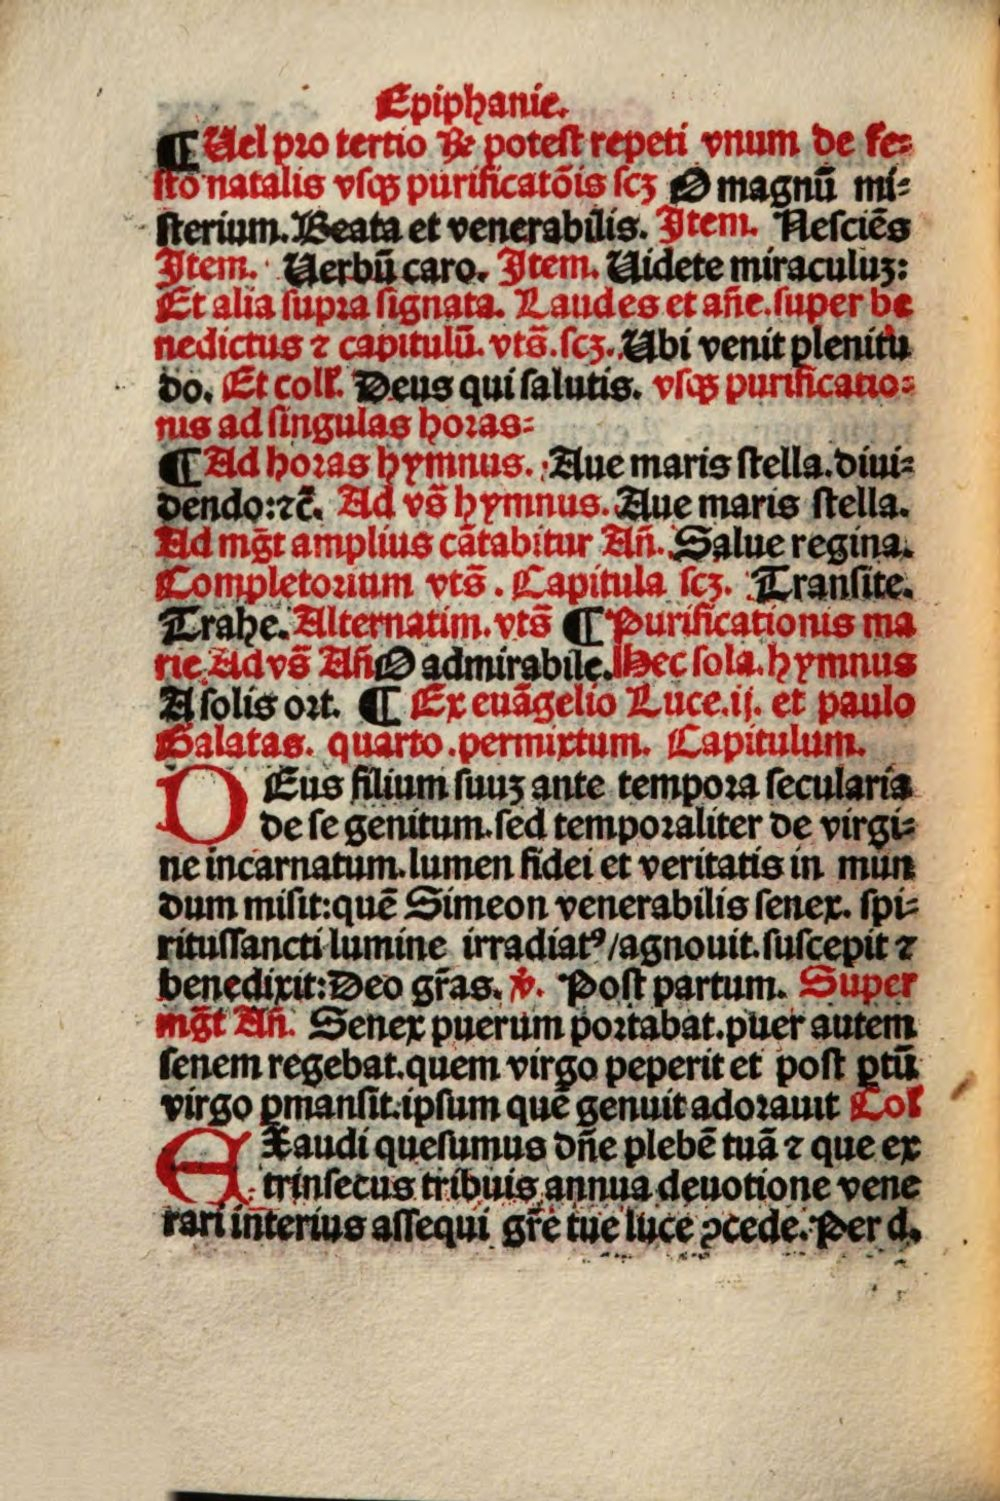 Epiphanie.
¶ Uel pro tertio ℞ potest repeti vnum de fe-
sto natalis vsqꝫ purificatōis scꝫ O magnū mi-
sterium. Beata et venerabilis. Item. Nesciēs
Item. Uerbū caro. Item. Uidete miraculuꝫ:
Et alia supra signata. Laudes et añe. super be
nedictus ⁊ capitulū. vts̄. scꝫ. Ubi venit plenitu
do. Et coll'. Deus qui salutis. vsqꝫ purificatio-
nis ad singulas horas:
¶ Ad horas hymnus. Aue maris stella. diui-
dendo: ⁊c̄. Ad vs̄ hymnus. Aue maris stella.
Ad mg̃t amplius cātabitur Añ. Salue regina.
Completorium vts̄. Capitula scꝫ. Transite.
Trahe. Alternatim. vts̄ ¶ Purificationis ma
rie. Ad vs̄ Añ O admirabile. Hec sola. hymnus
A solis ort. ¶ Ex euāgelio Luce. ij. et paulo
Galatas. quarto. permixtum. Capitulum.
DEus filium suuꝫ ante tempora secularia
de se genitum. sed temporaliter de virgi-
ne incarnatum. lumen fidei et veritatis in mun
dum misit: quē Simeon venerabilis senex. spi-
ritussancti lumine irradiatꝰ/agnouit. suscepit ⁊
benedixit: Deo gr̄as. ℣. Post partum. Super
mg̃t Añ. Senex puerum portabat. puer autem
senem regebat. quem virgo peperit et post ꝑtū
virgo ꝑmansit. ipsum quē genuit adorauit Col'
EXaudi quesumus dñe plebē tuā ⁊ que ex
trinsecus tribuis annua deuotione vene
rari interius assequi gr̄e tue luce ꝯcede. Per d.